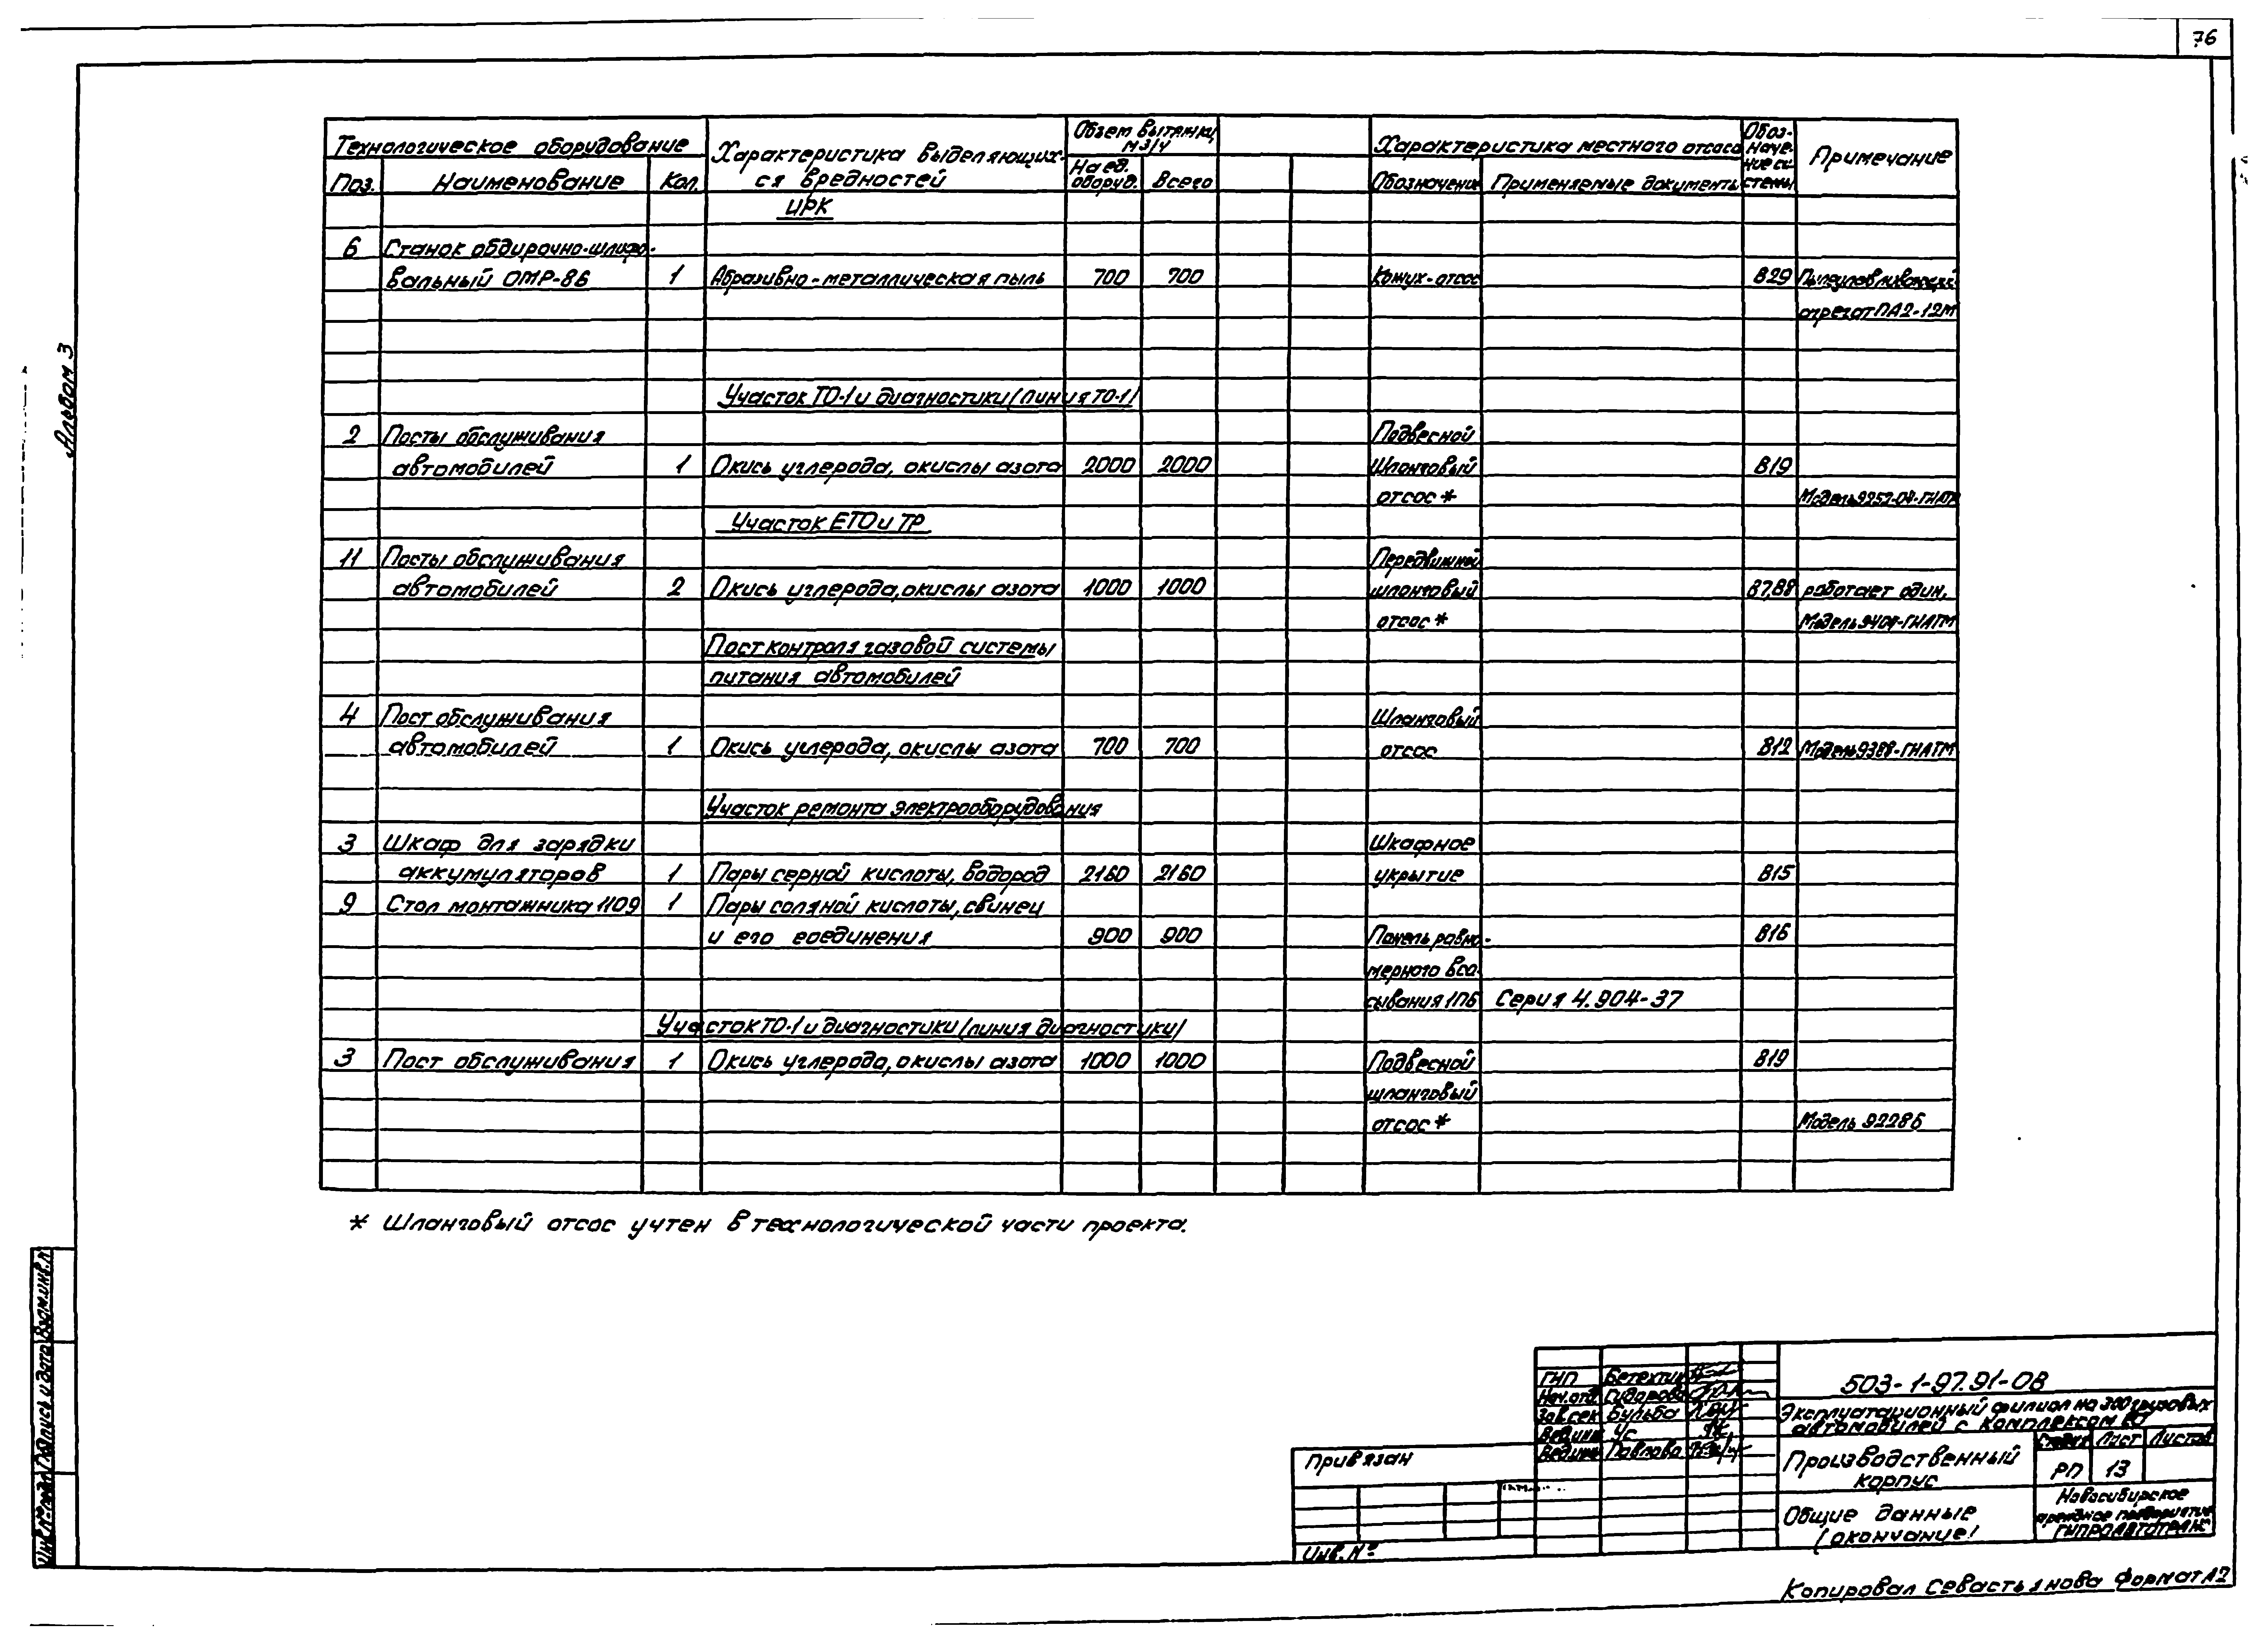 76
Альбом 3
Технологическое оборудование
Поз.
Наименование
Кол.
Характеристика выделяющих-
ся вредностей
Объем вытяжки,
м3/ч
На ед.
оборуд.
Всего
Характеристика местного отсоса
Обозначение
Применяемые документы
Обоз-
наче-
ние си
стемы
Примечание
ЦРК
6 Станок обдирочно-шлифо-
вальный ОМР-86 1 Абразивно-металлическая пыль 700 700 Кожух-отсос В29 Пылеулавливающий
агрегат ПА2-12М
Участок ТО-1 и диагностики (линия ТО-1)
2 Посты обслуживания Подвесной
автомобилей 1 Окись углерода, окислы азота 2000 2000 Шланговый В19
отсос *
Участок ЕТО и ТР
11 Посты обслуживания Передвижной
автомобилей 2 Окись углерода, окислы азота 1000 1000 шланговый В7,В8 работает один,
отсос * Модель 9401-ГИАТМ
Пост контроля газовой системы
питания автомобилей
4 Пост обслуживания Шланговый
автомобилей 1 Окись углерода, окислы азота 700 700 отсос В12 Модель 9388-ГИАТМ
Участок ремонта электрооборудования
3 Шкаф для зарядки Шкафное
аккумуляторов 1 Пары серной кислоты, водород 2160 2160 укрытие В15
9 Стол монтажника 1109 1 Пары соляной кислоты, свинец
и его соединения 900 900 Панель равно- В16
мерного вса-
сывания 1ПБ Серия 4.904-37
Участок ТО-1 и диагностики (линия диагностики)
3 Пост обслуживания 1 Окись углерода, окислы азота 1000 1000 Подвесной В19
шланговый
отсос * Модель 92286
* Шланговый отсос учтен в технологической части проекта.
Взам.инв.№
Подпись и дата
Инв.№ подл.
Привязан
Инв. №
ГИП
Нач.отд. Сидорова
Зав.сек Бульба
Вед.инж Ус
Вед.инж Павлова
503-1-97.91-ОВ
Эксплуатационный филиал на 300 грузовых
автомобилей с комплексом ЕО
Производственный
корпус
Стадия Лист Листов
РП 13
Общие данные
(окончание)
Новосибирское
арендное предприятие
ГИПРОАВТОТРАНС
Копировал Севастьянова Формат А2